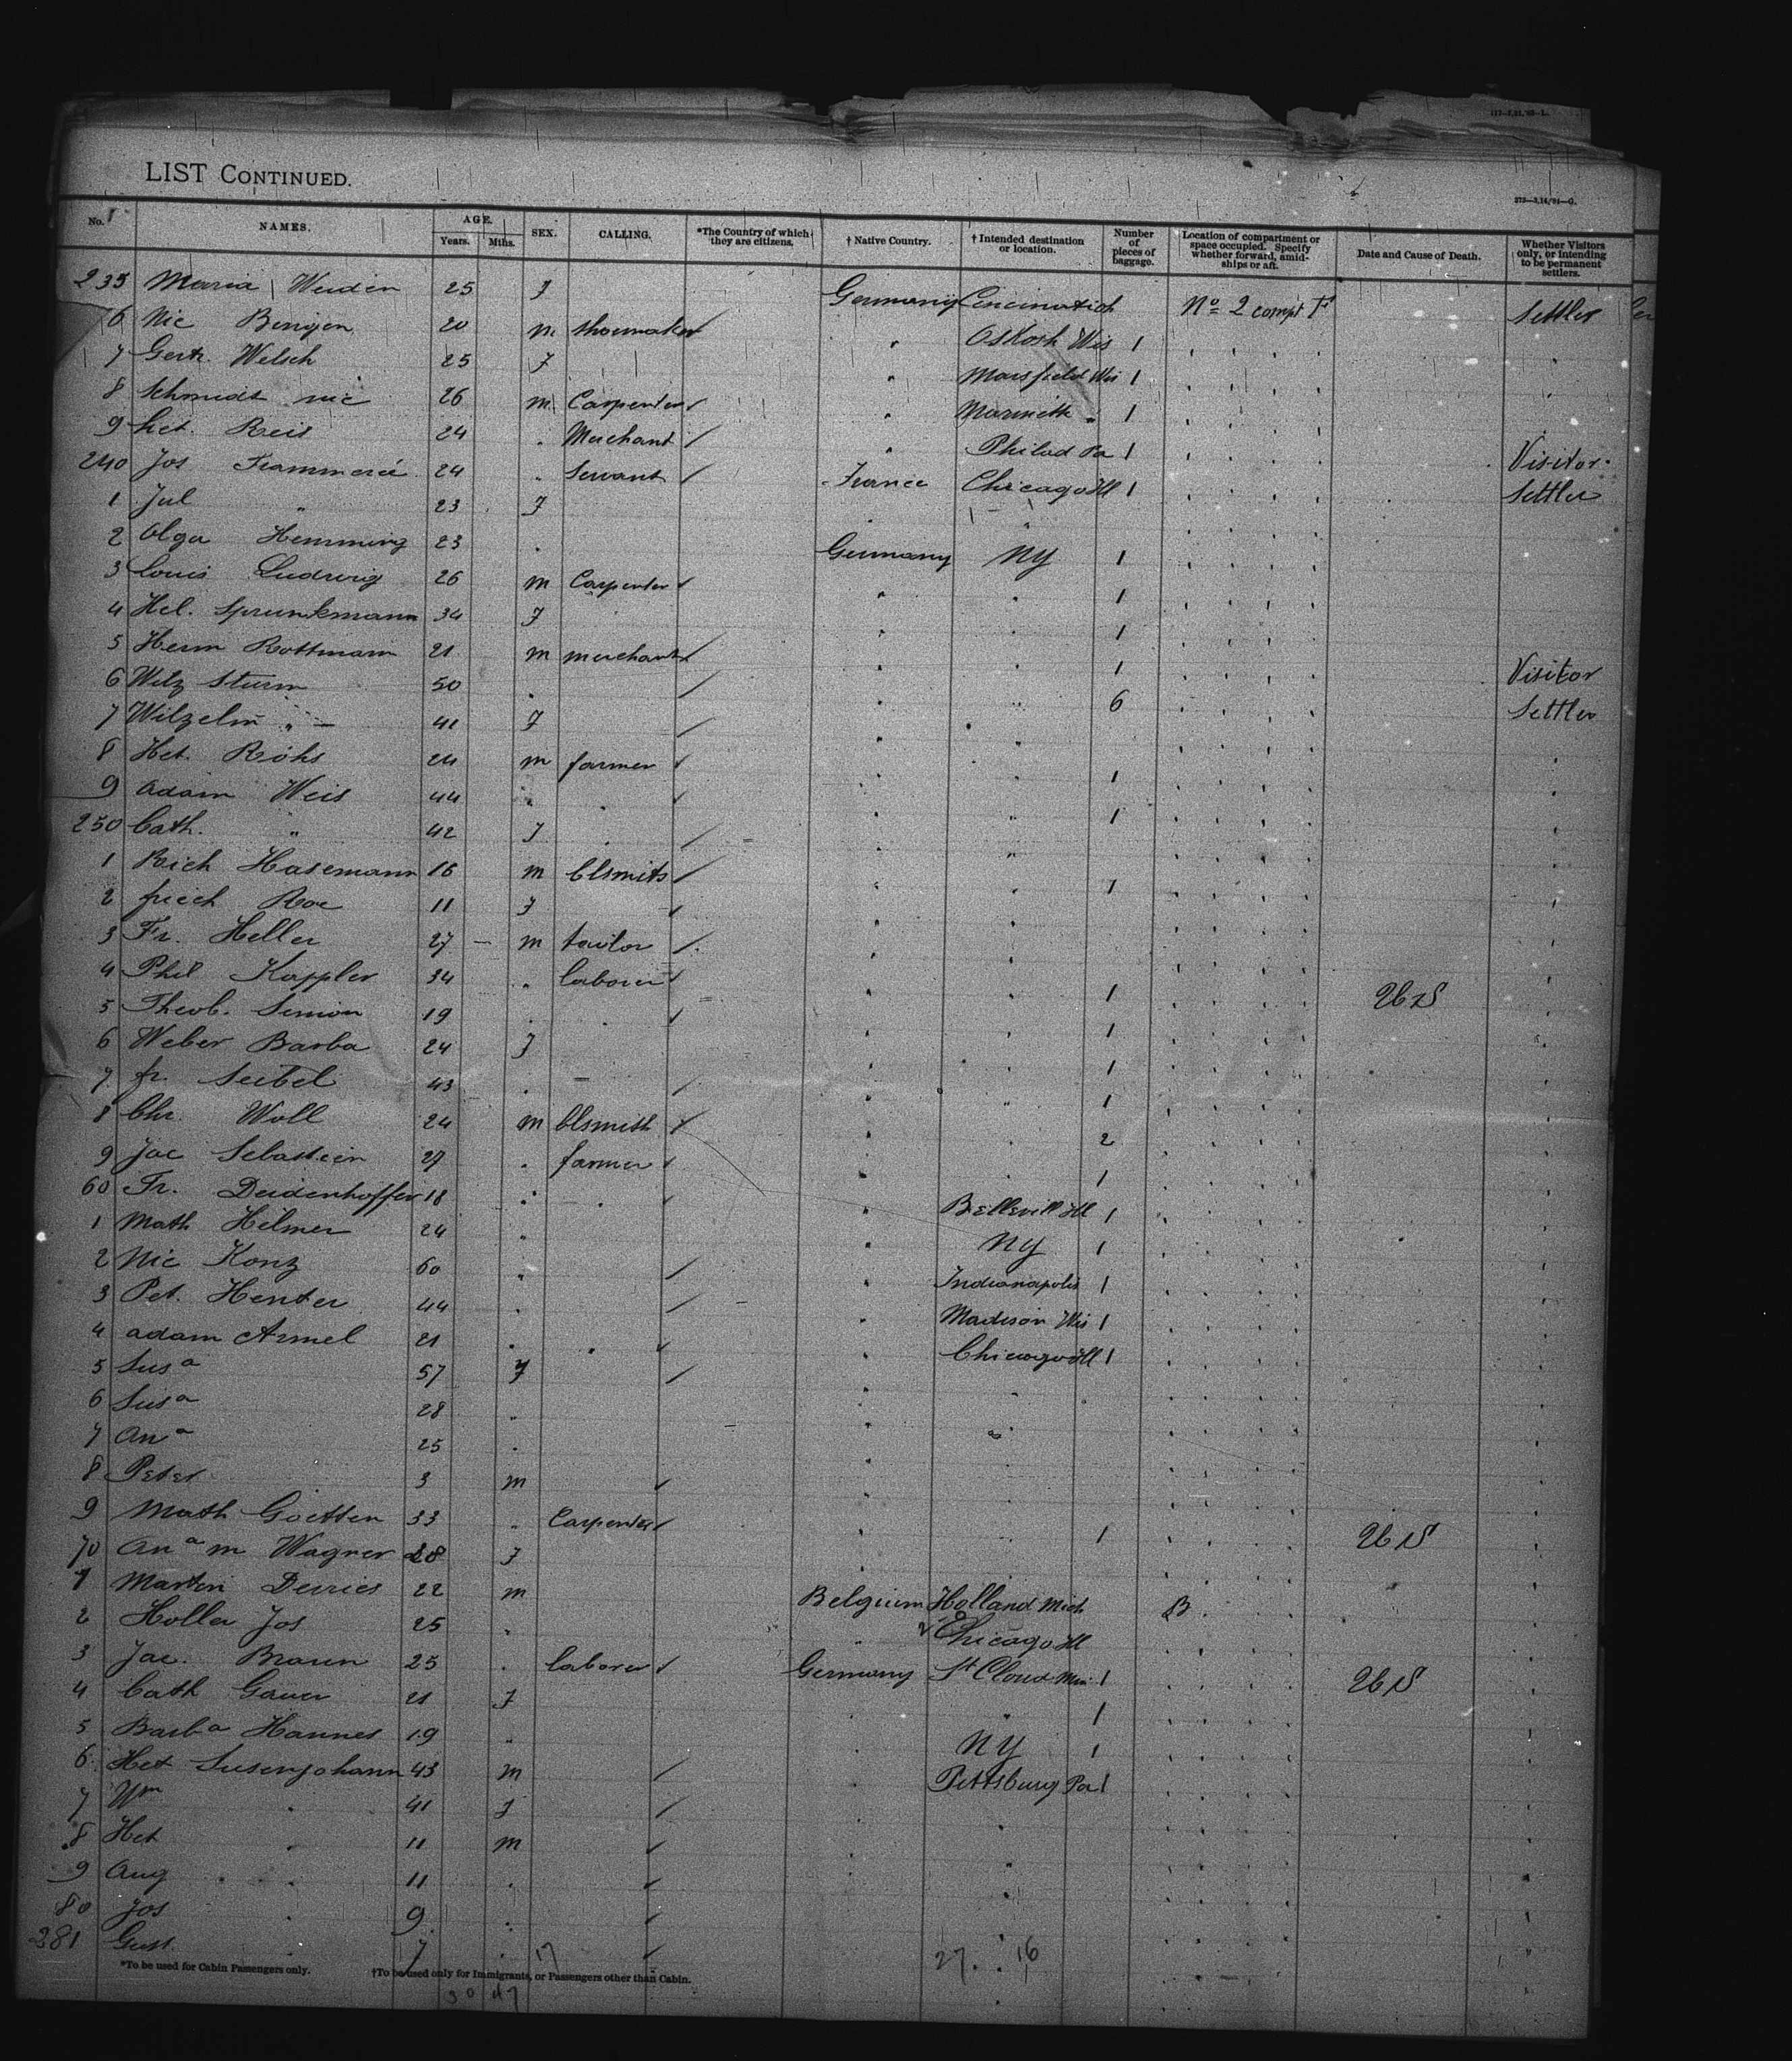 LIST CONTINUED.
273—3,14/94—G.
No. NAMES. AGE. Years. Mths. SEX. CALLING. *The Country of which they are citizens. † Native Country. † Intended destination or location. Number of pieces of baggage. Location of compartment or space occupied. Specify whether forward, amidships or aft. Date and Cause of Death. Whether Visitors only, or intending to be permanent settlers.
235 Maria 25 F Germany No 2 compt F Settler
6 Nic 20 m shoemaker " Oskosh Wis 1
7 Gertr. Welsch 25 F " Marsfield Wis 1
8 Schmidt nic 26 m Carpenter " 1
9 Reis 24 " Merchant " Philad Pa 1 Visitor
240 Jos 24 " Servant France Chicago Ill 1 Settler
1 Jul " 23 F "
2 Olga Hemming 23 " Germany NY 1
3 Louis Ludwig 26 m Carpenter " " 1
4 Hel. Sprunkmann 34 F " " 1
5 Herm Rottmann 21 m merchant " " 1 Visitor
6 Wilz Sturm 50 " " " 6 Settler
7 Wilzelm " 41 F " "
8 Het. Röhs 24 m farmer " " 1
9 Adam Weis 44 " " " " 1
250 Cath. " 42 F " "
1 Rich Hasemann 16 m blsmits " " 1
2 Roe 11 F
3 Fr. Heller 27 — m tailor
4 Phil Kappler 34 " laborer " " 1
5 Theob. Simon 19 " " " " 1
6 Weber Barba 24 F " " 1
7 fr. Seibel 43 " " " 1
8 Chr. Woll 24 m blsmith " " 2
9 Jac Sebastein 27 " farmer " " 1
60 Fr. Deidenhoffer 18 " " " Bellevill Ill 1
1 Math Hilmer 24 " " NY 1
2 Nic Konz 60 " " Indianapolis 1
3 Pet. Henter 44 " " Madison Wis 1
4 adam Armel 21 " " " Chicago Ill 1
5 Sus a 57 F " "
6 Sus a 28 "
7 An a 25 " "
8 Peter 3 m
9 Math Goetten 33 " Carpenter " " 1
70 An a m Wagner 28 F
1 Martin 22 m Belgium Holland Mich B
2 Holler Jos 25 " " Chicago Ill
3 Jac. Braun 25 " laborer Germany St Cloud Min 1
4 Cath Gauer 21 F " " 1
5 Barb a Hannes 19 " " NY 1
6 Het Susenjohann 43 m " Pittsburg Pa 1
7 Wm " 41 F " "
8 Het " 11 m " "
9 Aug " 11 " " "
80 Jos " 9 " "
281 Gust " 7 "
17 27 16
*To be used for Cabin Passengers only. †To be used only for Immigrants, or Passengers other than Cabin.
30 47